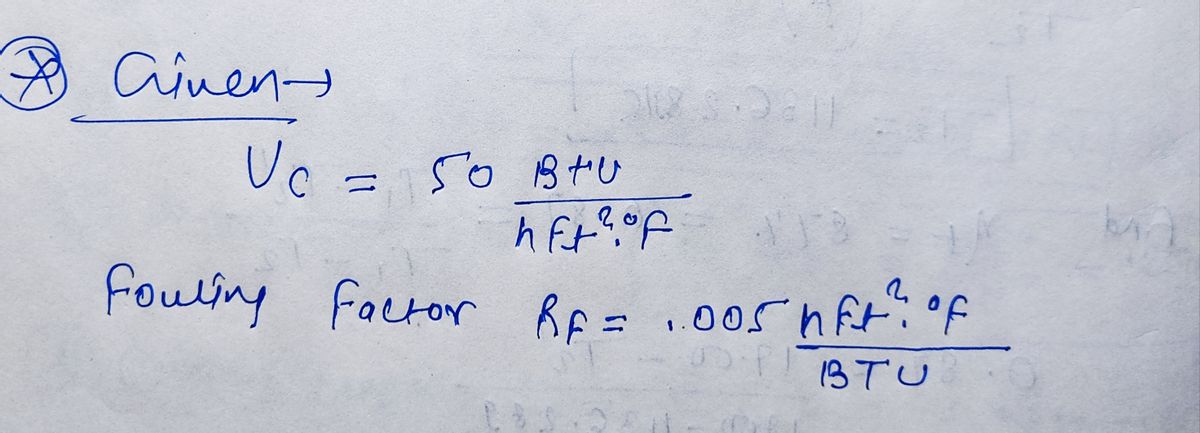 Given →
Uc = 50 BTU / h ft². °F
Fouling Factor RF = .005 h ft². °F / BTU